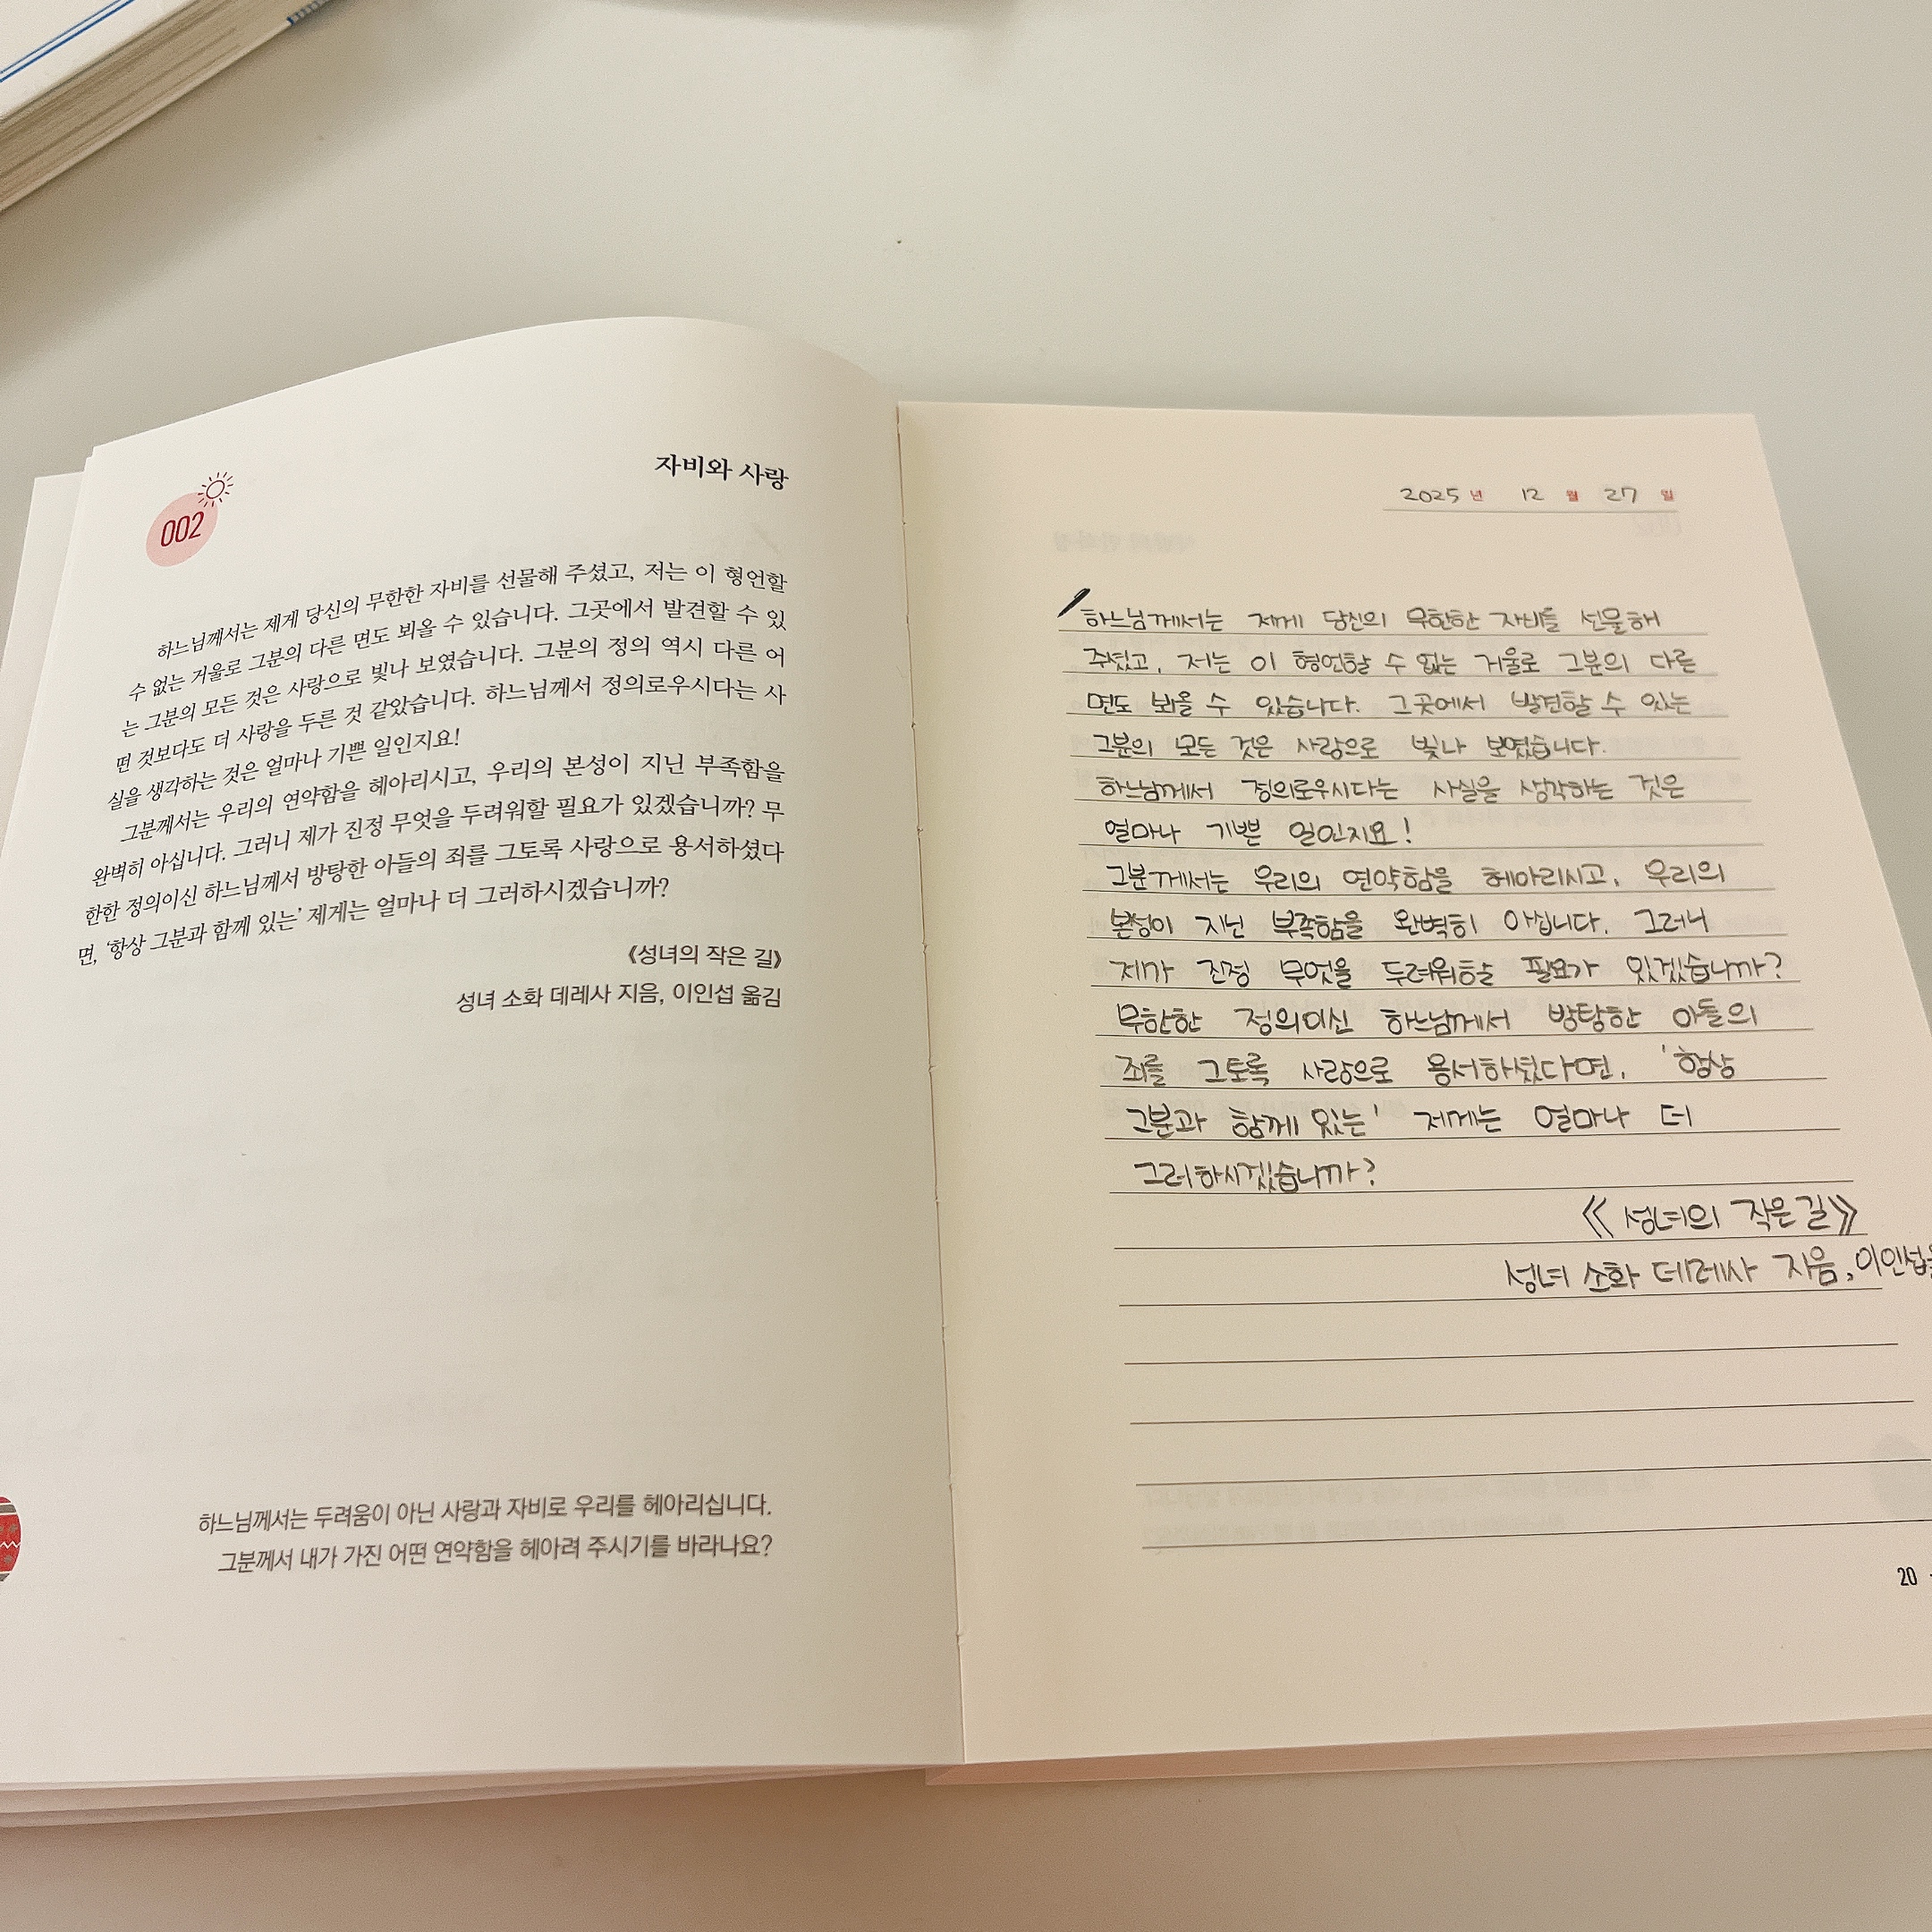 자비와 사랑
002
하느님께서는 제게 당신의 무한한 자비를 선물해 주셨고, 저는 이 형언할
수 없는 거울로 그분의 다른 면도 뵈올 수 있습니다. 그곳에서 발견할 수 있
는 그분의 모든 것은 사랑으로 빛나 보였습니다. 그분의 정의 역시 다른 어
떤 것보다도 더 사랑을 두른 것 같았습니다. 하느님께서 정의로우시다는 사
실을 생각하는 것은 얼마나 기쁜 일인지요!
그분께서는 우리의 연약함을 헤아리시고, 우리의 본성이 지닌 부족함을
완벽히 아십니다. 그러니 제가 진정 무엇을 두려워할 필요가 있겠습니까? 무
한한 정의이신 하느님께서 방탕한 아들의 죄를 그토록 사랑으로 용서하셨다
면, ‘항상 그분과 함께 있는’ 제게는 얼마나 더 그러하시겠습니까?
《성녀의 작은 길》
성녀 소화 데레사 지음, 이인섭 옮김
하느님께서는 두려움이 아닌 사랑과 자비로 우리를 헤아리십니다.
그분께서 내가 가진 어떤 연약함을 헤아려 주시기를 바라나요?
2025년 12월 27일
하느님께서는 제게 당신의 무한한 자비를 선물해
주셨고, 저는 이 형언할 수 없는 거울로 그분의 다른
면도 뵈올 수 있습니다. 그곳에서 발견할 수 있는
그분의 모든 것은 사랑으로 빛나 보였습니다.
하느님께서 정의로우시다는 사실을 생각하는 것은
얼마나 기쁜 일인지요!
그분께서는 우리의 연약함을 헤아리시고, 우리의
본성이 지닌 부족함을 완벽히 아십니다. 그러니
제가 진정 무엇을 두려워할 필요가 있겠습니까?
무한한 정의이신 하느님께서 방탕한 아들의
죄를 그토록 사랑으로 용서하셨다면, '항상
그분과 함께 있는' 제게는 얼마나 더
그러하시겠습니까?
《성녀의 작은 길》
성녀 소화 데레사 지음, 이인섭
20